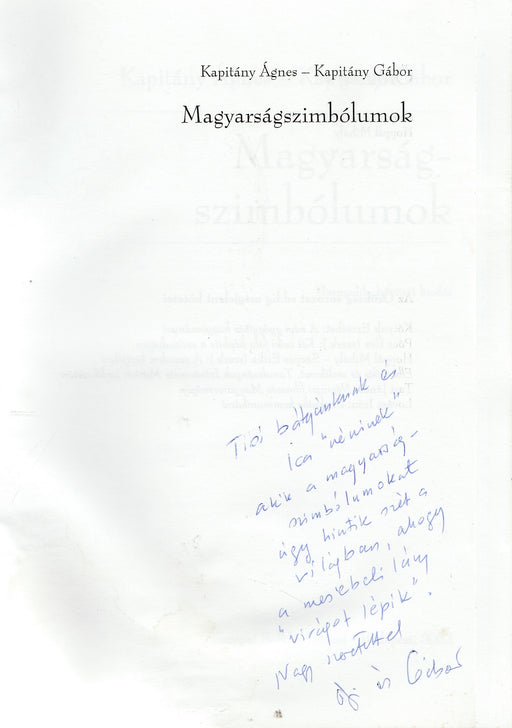 Kapitány Ágnes – Kapitány Gábor
Magyarságszimbólumok
Tibi bátyánknak és
Ica "néninek"
akik a magyarság-
szimbólumokat
úgy hintik szét a
világban, ahogy
a mesebeli lány
"virágot lépik".
Nagy szeretettel
és Gábor